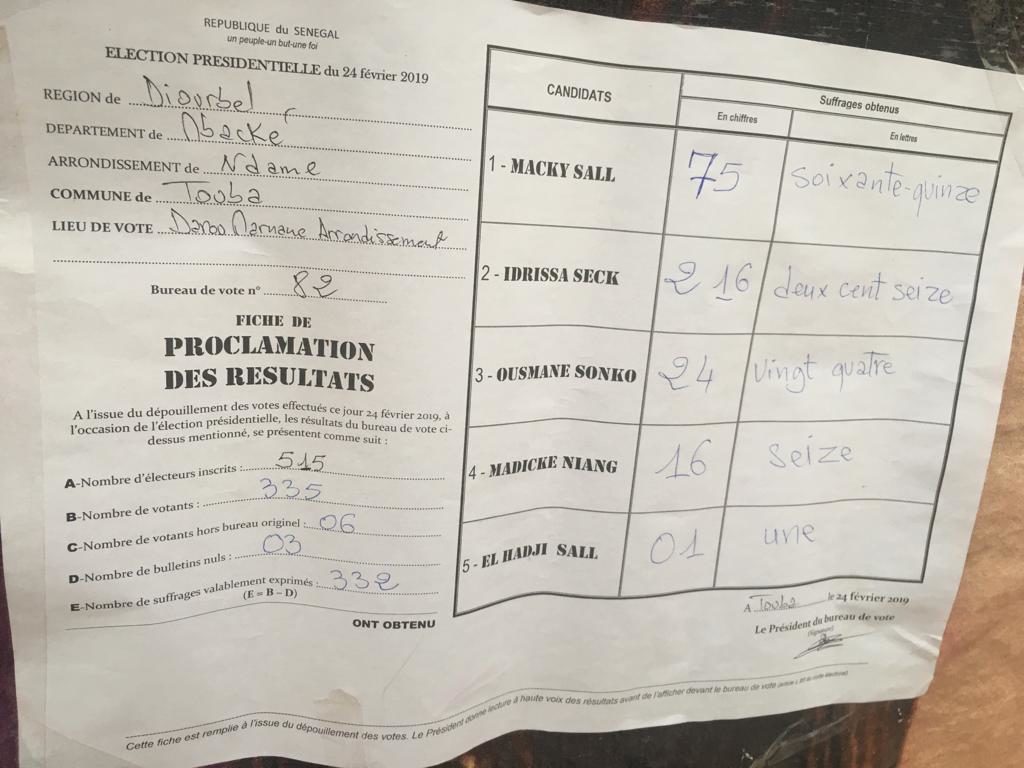 REPUBLIQUE du SENEGAL
un peuple-un but-une foi
ELECTION PRESIDENTIELLE du 24 février 2019
REGION de Diourbel
DEPARTEMENT de Mbacke
ARRONDISSEMENT de Ndame
COMMUNE de Touba
LIEU DE VOTE Darou Marnane Arrondissement
Bureau de vote n° 82
FICHE DE
PROCLAMATION
DES RESULTATS
A l'issue du dépouillement des votes effectués ce jour 24 février 2019, à
l'occasion de l'élection présidentielle, les résultats du bureau de vote ci-
dessus mentionné, se présentent comme suit :
A-Nombre d'électeurs inscrits : 515
B-Nombre de votants : 335
C-Nombre de votants hors bureau originel : 06
D-Nombre de bulletins nuls : 03
E-Nombre de suffrages valablement exprimés : 332
(E = B – D)
ONT OBTENU
CANDIDATS
Suffrages obtenus
En chiffres
En lettres
1 - MACKY SALL 75 soixante-quinze
2 - IDRISSA SECK 216 deux cent seize
3 - OUSMANE SONKO 24 vingt quatre
4 - MADICKE NIANG 16 seize
5 - EL HADJI SALL 01 une
A Touba le 24 février 2019
Le Président du bureau de vote
(Signature)
Cette fiche est remplie à l'issue du dépouillement des votes. Le Président donne lecture à haute voix des résultats avant de l'afficher devant le bureau de vote